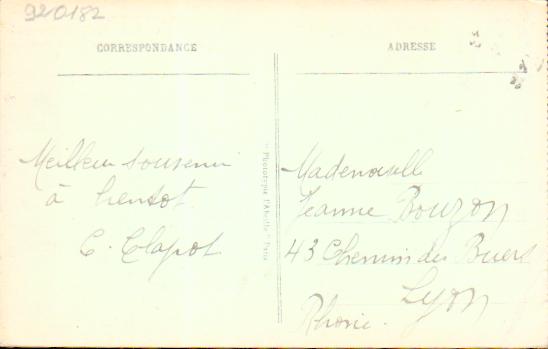 920182
CORRESPONDANCE
ADRESSE
Meilleur souvenir
à bientot
C. Clapot
"Phototypie l'Abeille" Paris
Mademoiselle
Jeanne Bouzon
43 Chemin des Buers
Lyon
Rhone.